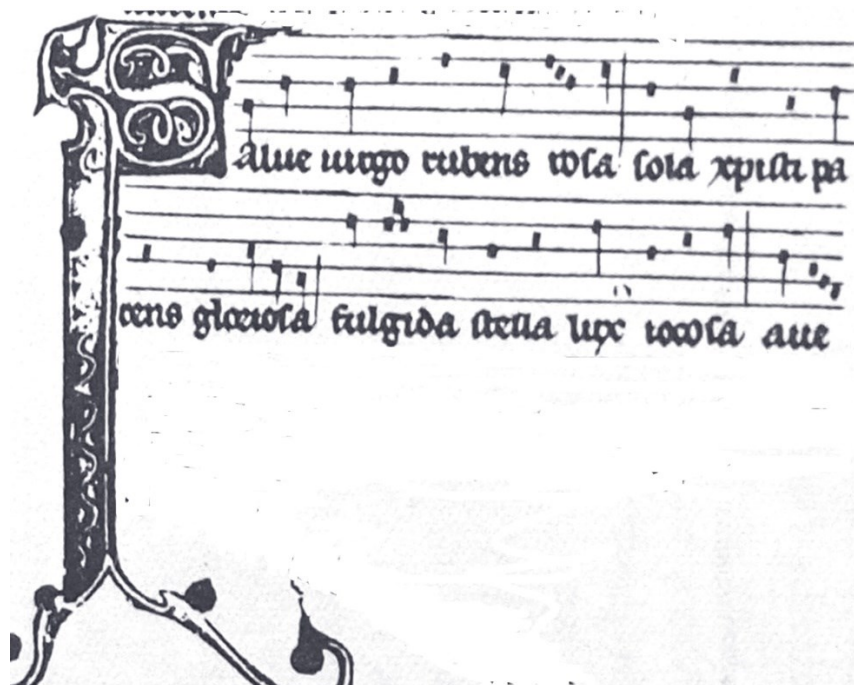 Salue uirgo rubens rosa sola xpisti pa
rens gloriosa fulgida stella lux iocosa aue